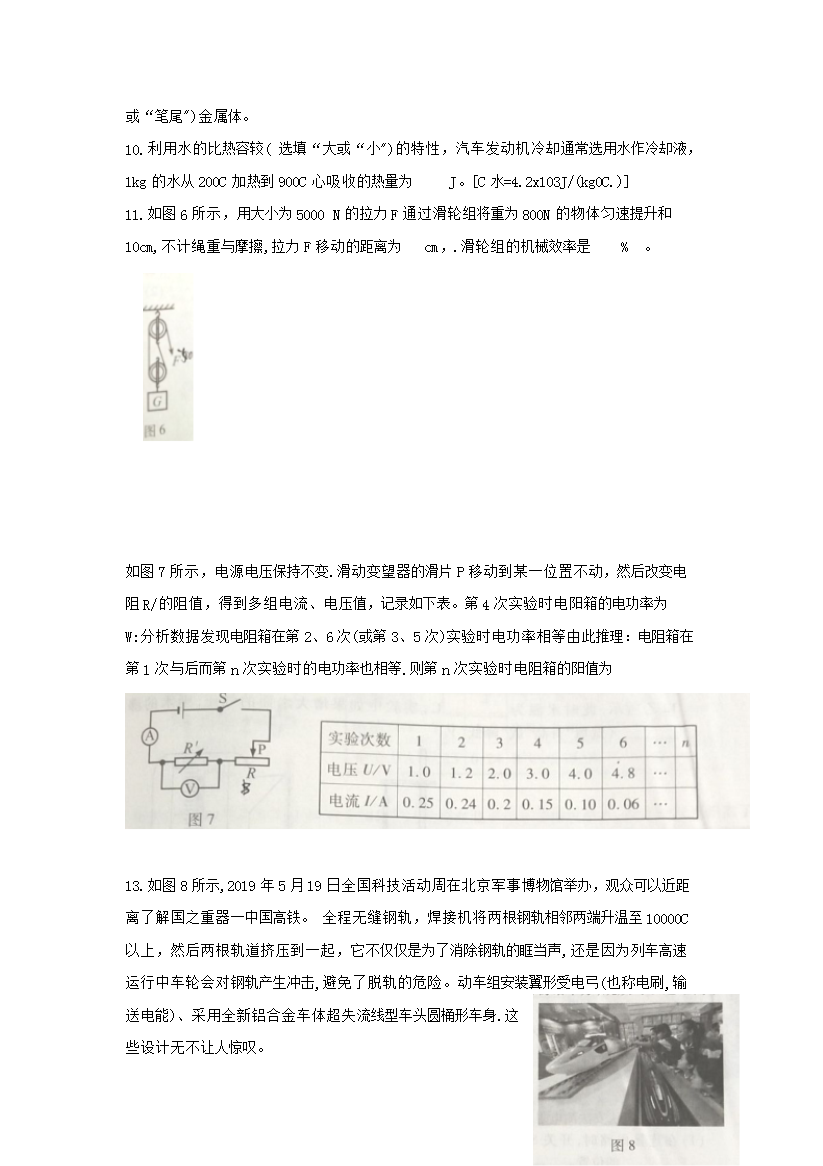 或“笔尾”)金属体。
10.利用水的比热容较( 选填“大或“小”)的特性，汽车发动机冷却通常选用水作冷却液，
1kg 的水从 200C 加热到 900C 心吸收的热量为 J。[C 水=4.2x103J/(kg0C.)]
11.如图 6 所示，用大小为 5000 N 的拉力 F 通过滑轮组将重为 800N 的物体匀速提升和
10cm,不计绳重与摩擦,拉力 F 移动的距离为 cm,.滑轮组的机械效率是 % 。
F
G
图6
如图 7 所示，电源电压保持不变.滑动变望器的滑片 P 移动到某一位置不动，然后改变电
阻 R/的阻值，得到多组电流、电压值，记录如下表。第 4 次实验时电阳箱的电功率为
W:分析数据发现电阻箱在第 2、6 次(或第 3、5 次)实验时电功率相等由此推理：电阻箱在
第 1 次与后而第 n 次实验时的电功率也相等.则第 n 次实验时电阻箱的阳值为
S
A
R'
P
R
V
8
图7
实验次数 1 2 3 4 5 6 … n
电压 U/V 1.0 1.2 2.0 3.0 4.0 4.8 …
电流 I/A 0.25 0.24 0.2 0.15 0.10 0.06 …
13.如图 8 所示,2019 年 5 月 19 日全国科技活动周在北京军事博物馆举办，观众可以近距
离了解国之重器一中国高铁。 全程无缝钢轨，焊接机将两根钢轨相邻两端升温至 10000C
以上，然后两根轨道挤压到一起，它不仅仅是为了消除钢轨的眶当声,还是因为列车高速
运行中车轮会对钢轨产生冲击,避免了脱轨的危险。动车组安装翼形受电弓(也称电刷,输
送电能)、采用全新铝合金车体超失流线型车头圆桶形车身.这
些设计无不让人惊叹。
图8